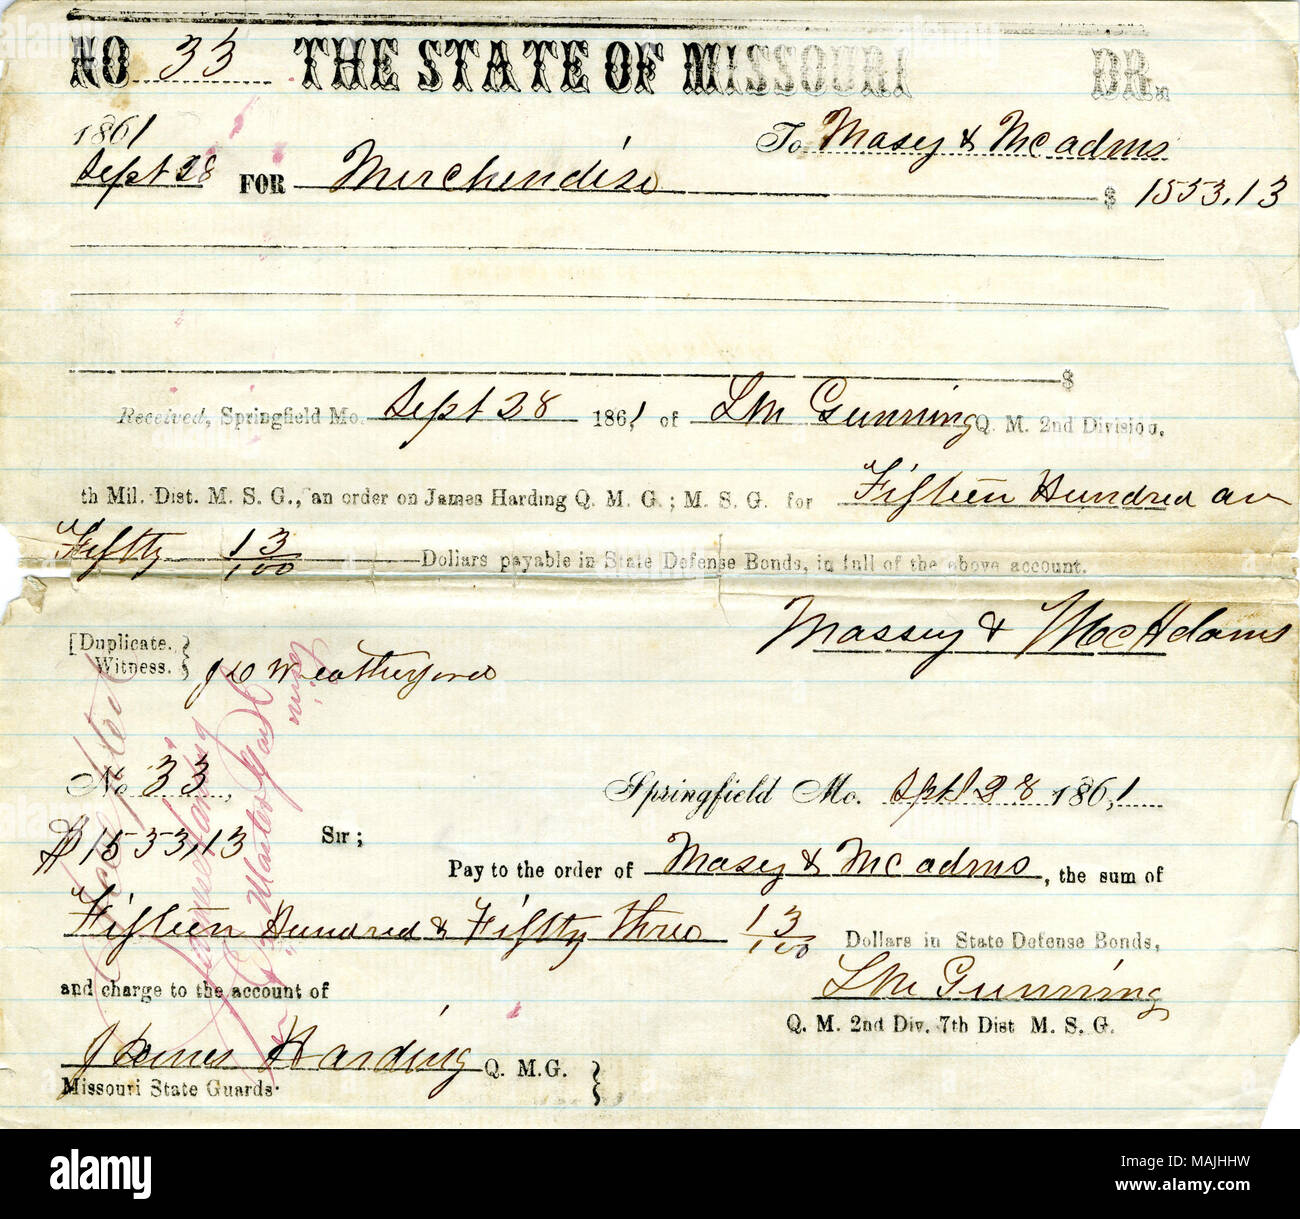 NO 33 THE STATE OF MISSOURI DR.
1861 To Masey & Mc adms
Sept 28 FOR Merchendise $ 1553,13
$
Received, Springfield Mo. Sept 28 1861, of L M Gunning Q. M. 2nd Division,
th Mil. Dist. M. S. G., an order on James Harding Q. M. G.; M. S. G. for Fifteen Hundred an
Fifty 13/100 Dollars payable in State Defense Bonds, in full of the above account.
Massey & McAdams
[Duplicate. }
Witness. } Weatherford
No 33, Springfield Mo. Sept 28 1861,
$1553,13 Sir;
Pay to the order of Masey & Mc adms, the sum of
Fifteen Hundred & Fifty three 13/100 Dollars in State Defense Bonds,
and charge to the account of L M Gunning
Q. M. 2nd Div. 7th Dist M. S. G.
James Harding Q. M.G. }
Missouri State Guards.
Accepted
James Harding
Qr Master Genl
alamy
Image ID: MAJHHW
www.alamy.com